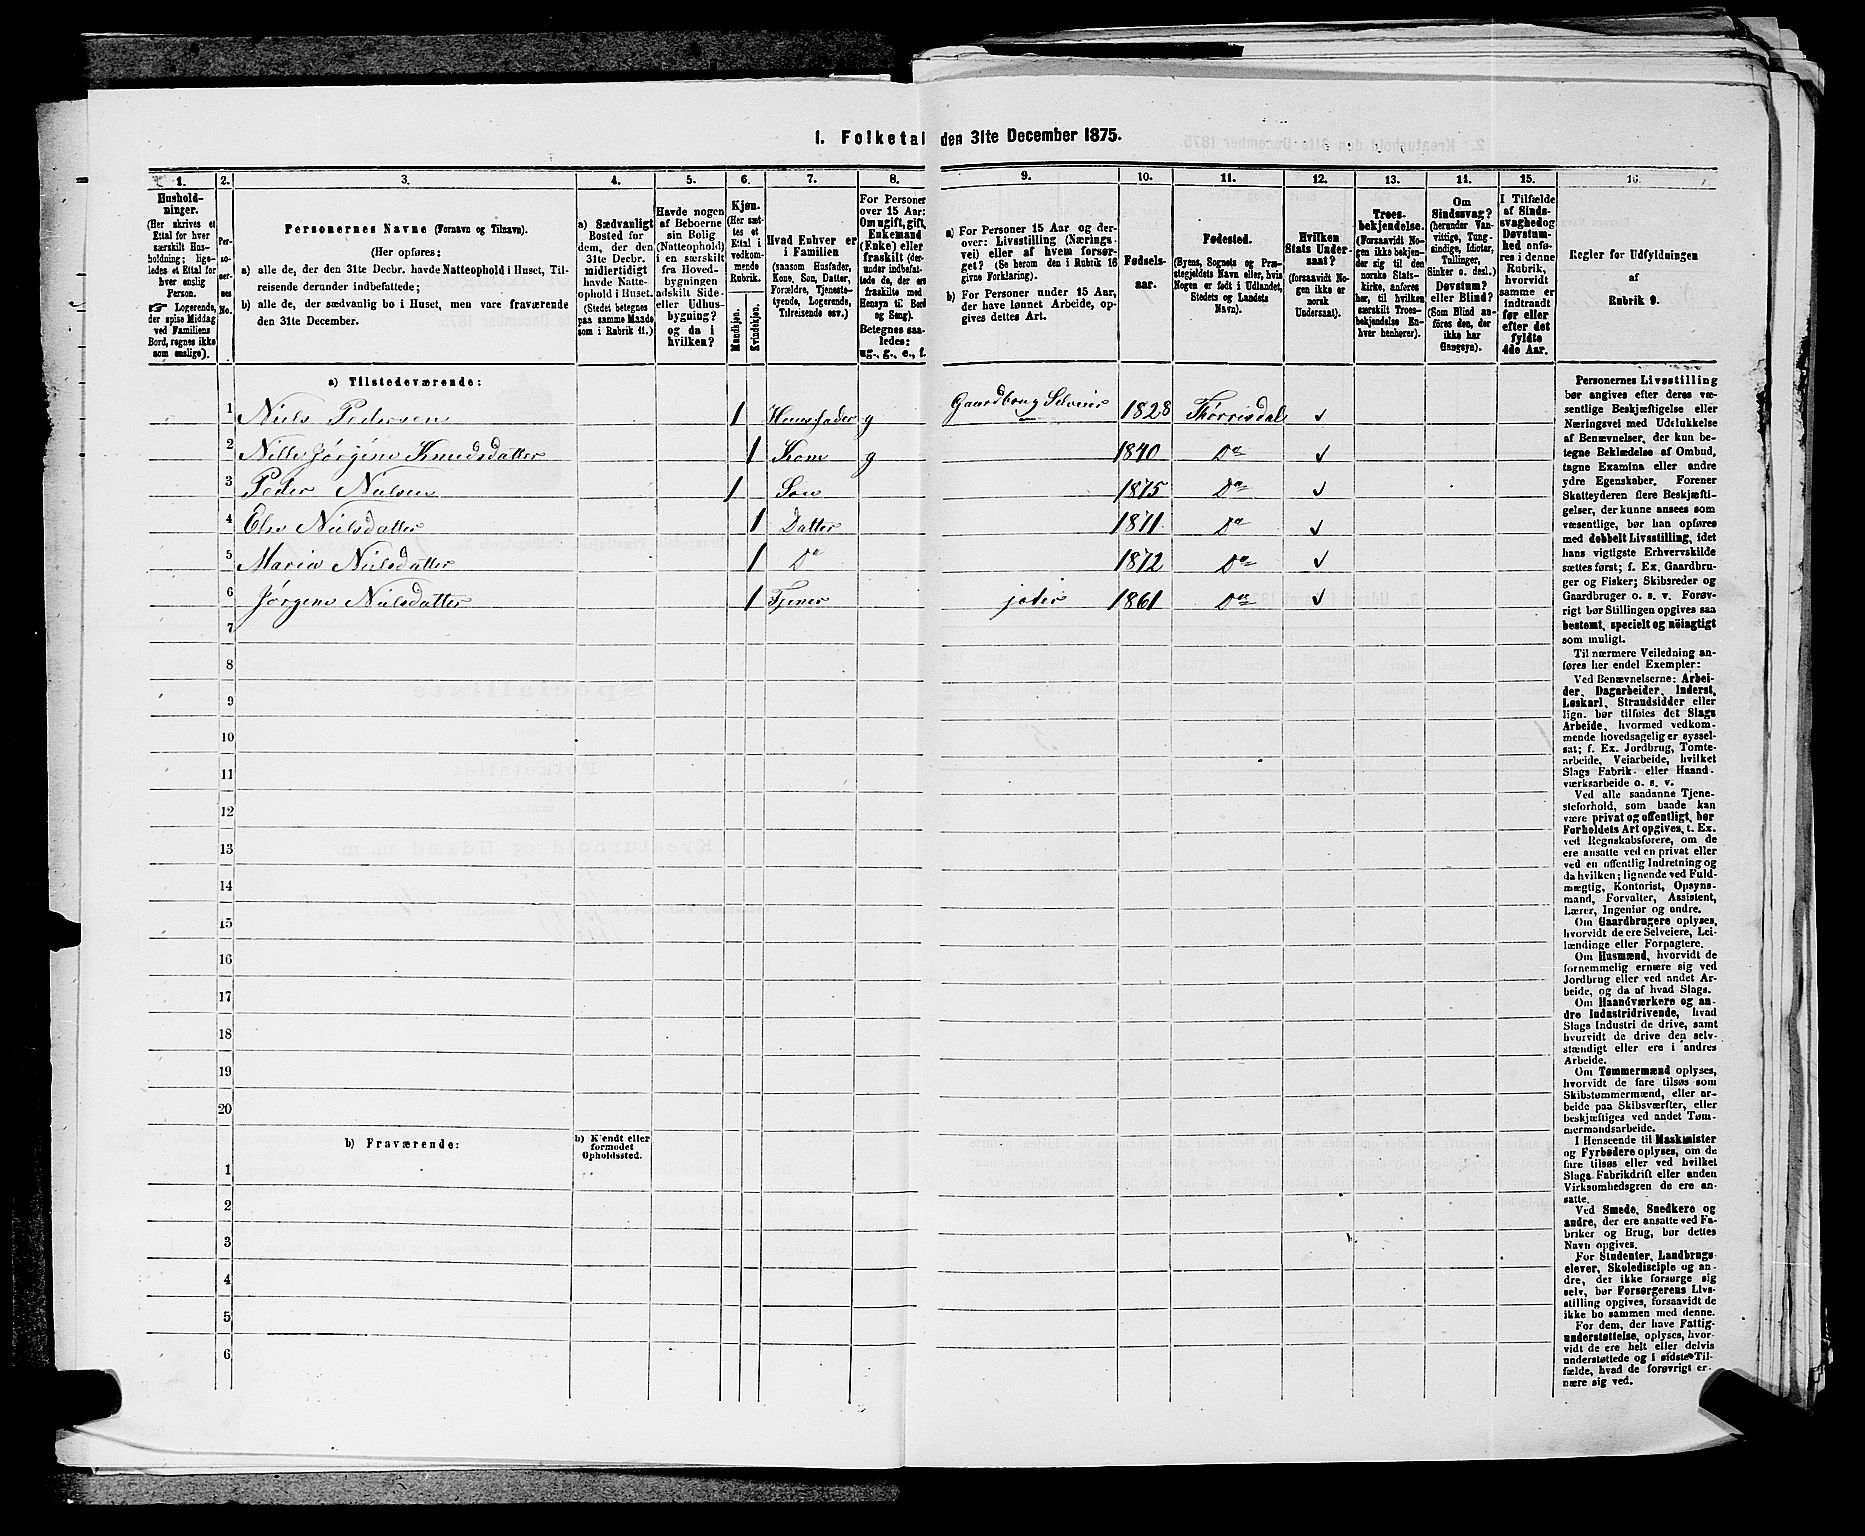 1. Folketal den 31te December 1875.
1. 2. 3. 4. 5. 6. 7. 8. 9. 10. 11. 12. 13. 11. 15. 16.
Hushold-
ninger.
(Her skrives et
Ettal for hver
særskilt Hus-
holdning; lige-
ledes et Ettal for
hver enslig
Person.
☞ Logerende,
der spise Middag
ved Familiens
Bord, regnes ikke
som enslige).
Per-
soner-
nes
No.
Personernes Navne (Fornavn og Tilnavn).
(Her opføres:
a) alle de, der den 31te Decbr. havde Natteophold i Huset, Til-
reisende derunder indbefattede;
b) alle de, der sædvanlig bo i Huset, men vare fraværende
den 31te December.
a) Sædvanligt
Bosted for
dem, der den
31te Decbr.
midlertidigt
havde Natte-
ophold i Huset.
(Stedet betegnes
paa samme Maade
som i Rubrik 11.)
Havde nogen
af Beboerne
sin Bolig
(Natteophold)
i en særskilt
fra Hoved-
bygningen
adskilt Side-
eller Udhus-
bygning?
og da i
hvilken?
Kjøn.
(Her sæt-
tes et
Ettal i
vedkom-
mende
Rubrik.
Mandkjøn.
Kvindekjøn.
Hvad Enhver er
i Familien
(saasom Husfader,
Kone, Søn, Datter,
Forældre, Tjeneste-
tyende, Logerende,
Tilreisende osv.)
For Personer
over 15 Aar:
Om ugift, gift,
Enkemand
(Enke) eller
fraskilt (der-
under indbefat-
tede de, der ere
fraskilte med
Hensyn til Bord
og Seng).
Betegnes saa-
ledes:
ug., g., e., f.
a) For Personer 15 Aar og der-
over: Livsstilling (Nærings
vei) eller af hvem forsør-
get? (Se herom den i Rubrik 16
givne Forklaring).
b) For Personer under 15 Aar,
der have lønnet Arbeide, op-
gives dettes Art.
Fødsels-
aar.
Fødested.
(Byens, Sognets og Præ-
stegjeldets Navn eller, hvis
Nogen er født i Udlandet,
Stedets og Landets
Navn).
Hvilken
Stats Under-
saat?
(forsaavidt No-
gen ikke er
norsk
Undersaat).
Troes-
bekjendelse.
(Forsaavidt No-
gen ikke bekjen-
der sig til den
norske Stats-
kirke, anføres
her, til hvilken
særskilt Troes-
bekjendelse En-
hver henhører).
Om
Sindssvag?
(herunder Van-
vittige, Tung-
sindige, Idioter,
Tullinger,
Sinker o. desl.)
Døvstum?
eller Blind?
(Som Blind an-
føres den, der
ikke har
Gangsyn).
I Tilfælde
af Sinds-
svaghed og
Døvstum-
hed anfø-
res i denne
Rubrik,
hvorvidt
samme er
indtraadt
før eller
efter det
fyldte
4de Aar.
Regler for Udfyldningen
af
Rubrik 9.
a) Tilstedeværende:
1 Niels Pedersen 1 Huusfader g Gaardbrug Selveier 1828 Thorrisdal
2 Nille Jørgine Knudsdatter 1 Kone g 1840 Do
3 Peder Nielsen 1 Søn 1875 Do
4 Else Nielsdatter 1 Datter 1871 Do
5 Maria Nielsdatter 1 Do 1872 Do
6 Jørgine Nielsdatter 1 Tjener 1861 Do
7
8
9
10
11
12
13
14
15
16
17
18
19
20
b) Fraværende:
b) Kjendt eller
formodet
Opholdssted.
1
2
3
4
5
6
Personernes Livsstilling
bør angives efter deres væ-
sentlige Beskjæftigelse eller
Næringsvei med Udelukkelse
af Benævnelser, der kun be-
tegne Beklædelse af Ombud,
tagne Examina eller andre
ydre Egenskaber. Forener
Skatteyderen flere Beskjæfti-
gelser, der kunne ansees som
væsentlige, bør han opføres
med dobbelt Livsstilling, idet
hans vigtigste Erhvervskilde
sættes først; f. Ex. Gaardbru-
ger og Fisker; Skibsreder og
Gaardbruger o. s. v. Forøv-
rigt bør Stillingen opgives saa
bestemt, specielt og nöiagtigt
som muligt.
Til nærmere Veiledning an-
føres her endel Exempler:
Ved Benævnelserne: Arbei-
der, Dagarbeider, Inderst,
Løskarl, Strandsidder eller
lign. bør tilføies det Slags
Arbeide, hvormed vedkom-
mende hovedsagelig er syssel-
sat; f. Ex. Jordbrug, Tomte-
arbeide, Veiarbeide, hvilket
Slags Fabrik- eller Haand-
værksarbeide o. s. v.
Ved alle saadanne Tjene-
steforhold, som baade kan
være privat og offentligt, bør
Forholdets Art opgives, t. Ex.
ved Regnskabsførere, om de
ere ansatte ved en privat eller
ved en offentlig Indretning og
da hvilken; lignende ved Fuld-
mægtig, Kontorist, Opsyns-
mand, Forvalter, Assistent,
Lærer, Ingeniør og andre.
Om Gaardbrugere oplyses,
hvorvidt de ere Selveiere, Lei-
lændinge eller Forpagtere.
Om Husmænd, hvorvidt de
fornemmelig ernære sig ved
Jordbrug eller ved andet Ar-
beide, og da af hvad Slags.
Om Haandværkere og an-
dre Industridrivende, hvad
Slags Industri de drive, samt
hvorvidt de drive den selv-
stændigt eller ere i andres
Arbeide.
Om Tømmermænd oplyses,
hvorvidt de fare tilsøs som
Skibstømmermænd, eller ar-
beide paa Skibsværfter, eller
beskjæftiges ved andet Tøm-
mermandsarbeide.
I Henseende til Maskinister
og Fyrbødere oplyses, om de
fare tilsøs eller ved hvilket
Slags Fabrikdrift eller anden
Virksomhedsgren de ere an-
satte.
Ved Smede, Snedkere og
andre, der ere ansatte ved Fa-
briker og Brug, bør dettes
Navn opgives.
For Studenter, Landbrugs-
elever, Skoledisciple og an-
dre, der ikke forsørge sig
selv, bør Forsørgerens Livs-
stilling opgives, forsaavidt de
ikke bo sammen med denne.
For dem, der have Fattig-
understøttelse, oplyses, hvor-
vidt de ere helt eller delvis
understøttede og i sidste Til-
fælde, hvad de forøvrigt er-
nære sig ved.